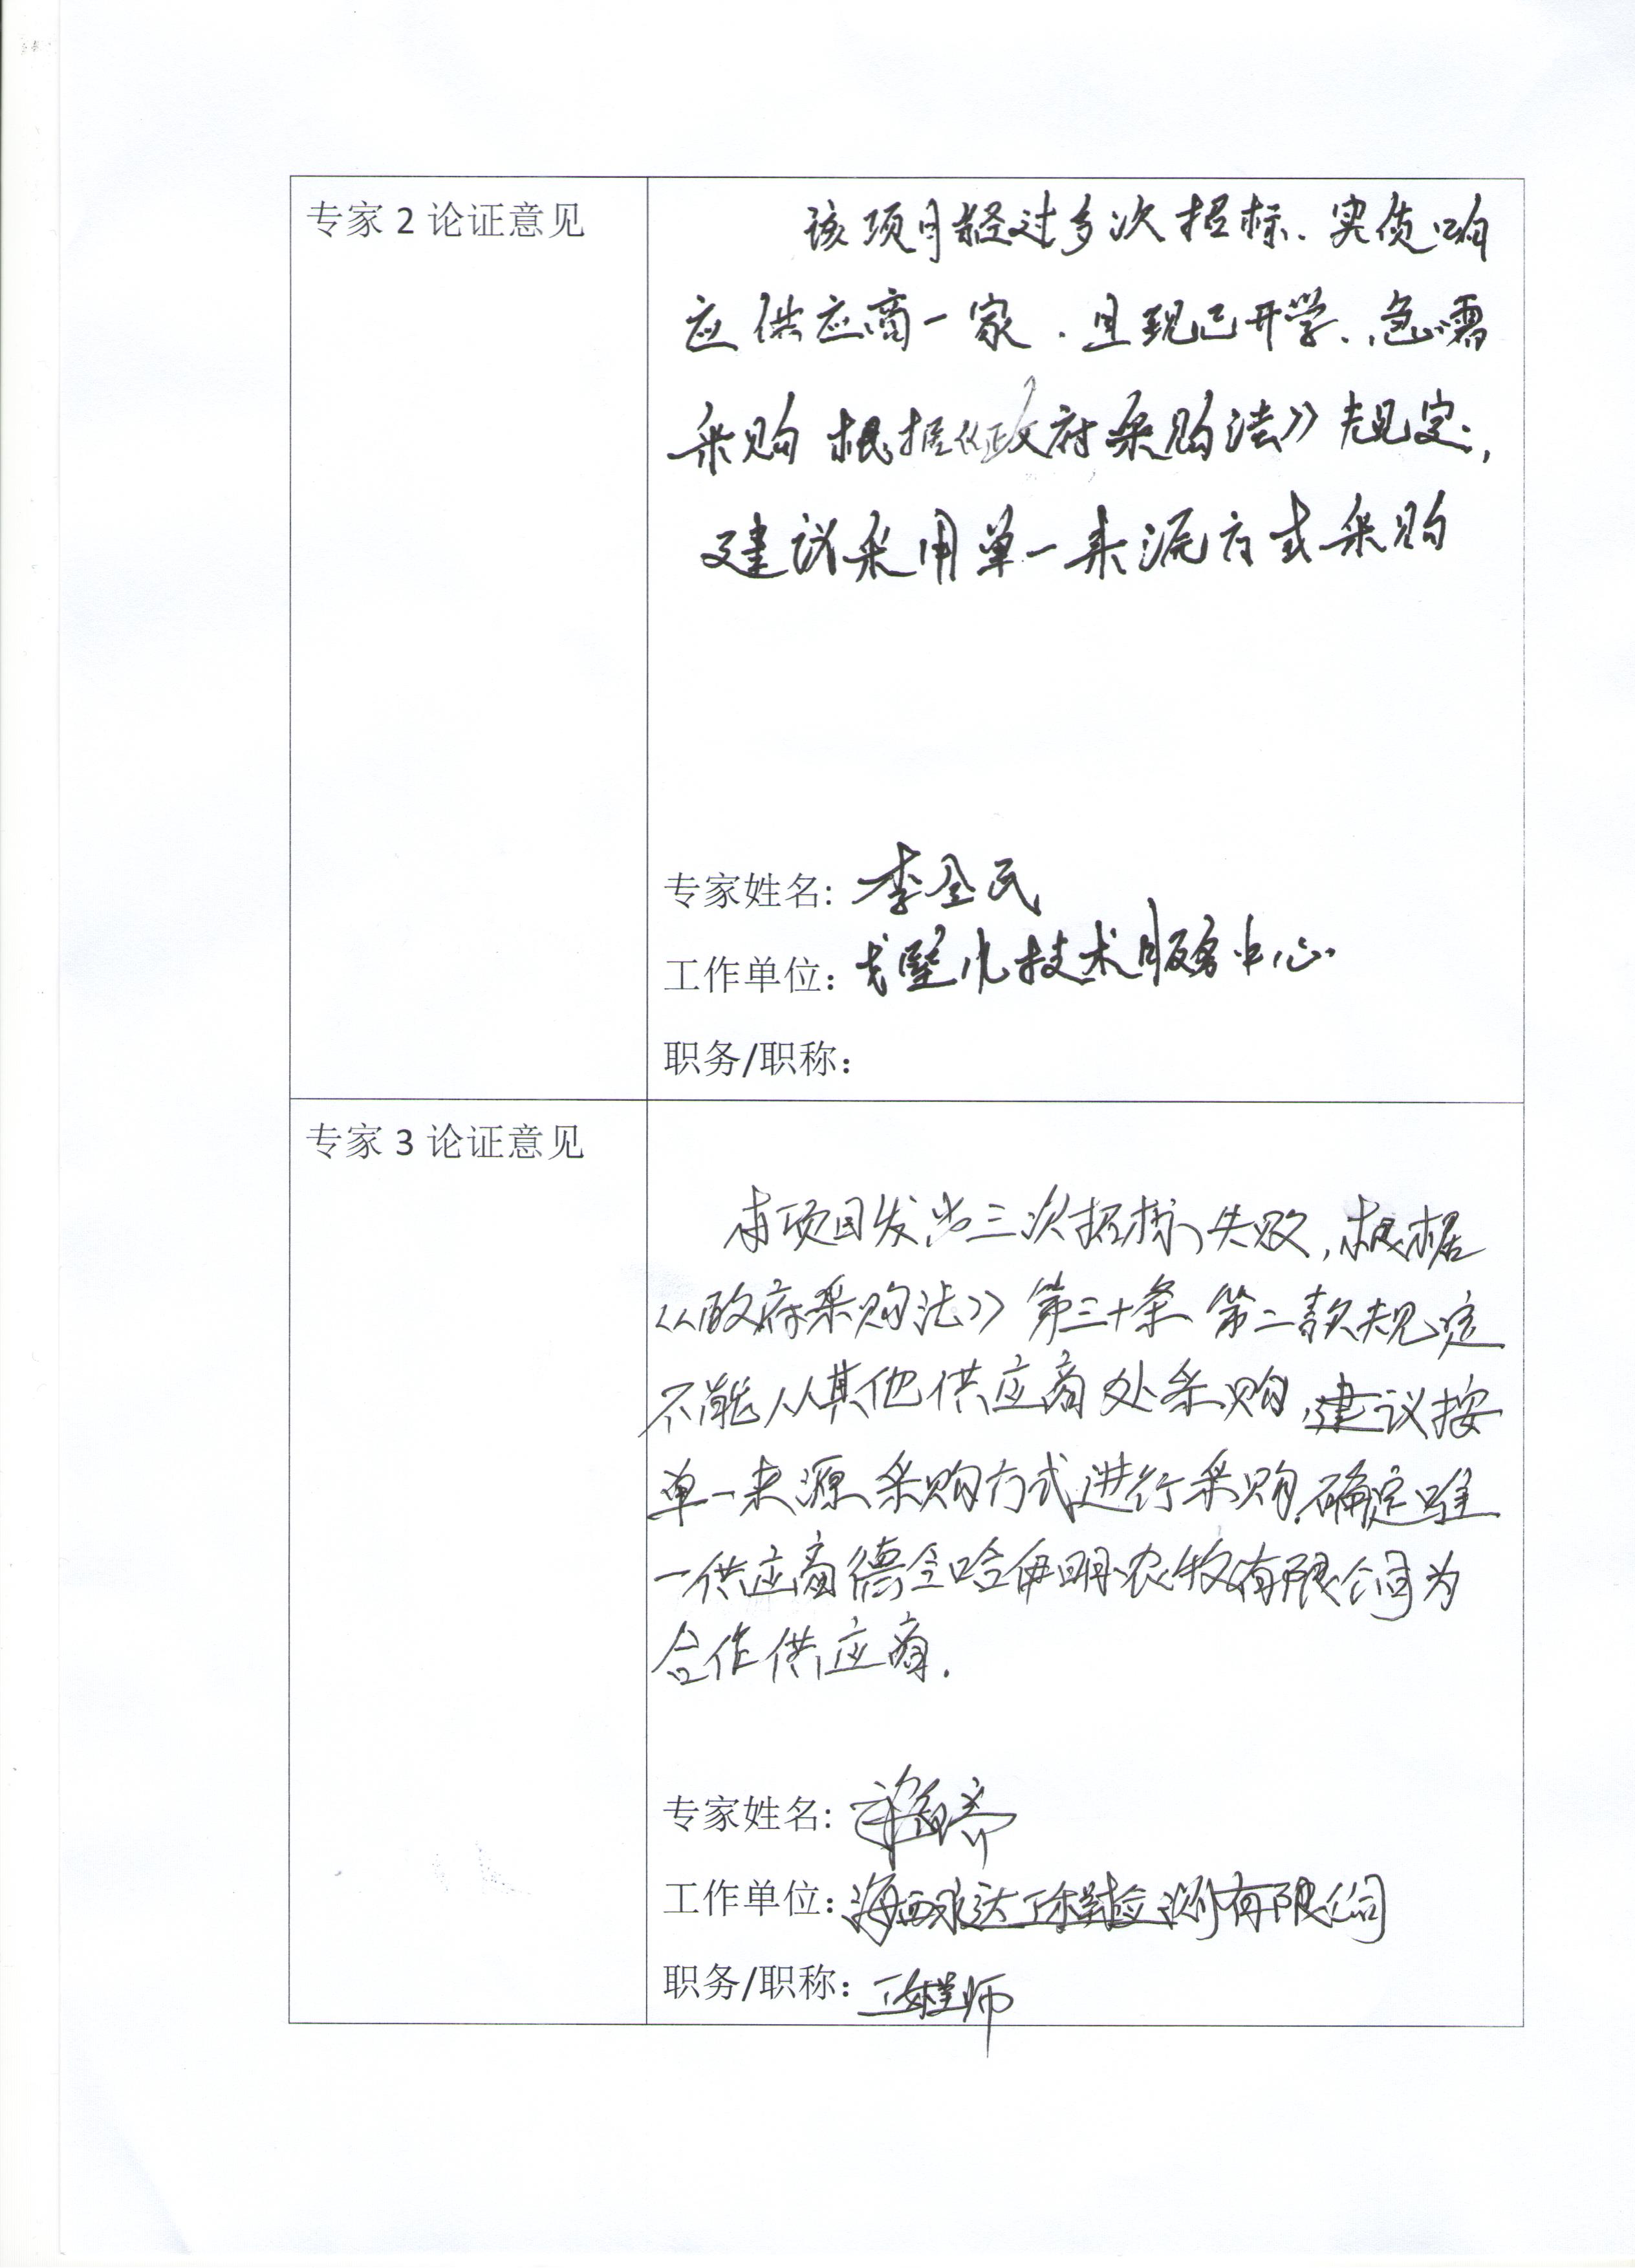 专家 2 论证意见
该项目经过多次招标、实质响
应供应商一家、且现已开学、急需
采购 根据《政府采购法》规定,
建议采用单一来源方式采购
专家姓名: 李全民
工作单位: 戈壁 技术服务中心
职务/职称:
专家 3 论证意见
本项目发出三次招标,失败,根据
《政府采购法》第三十条 第二款规定
不能从其他供应商处采购,建议按
单一来源采购方式进行采购.确定唯
一供应商德令哈伊明农牧有限公司为
合作供应商.
专家姓名:
工作单位: 海西永达工程检测有限公司
职务/职称: 工程师